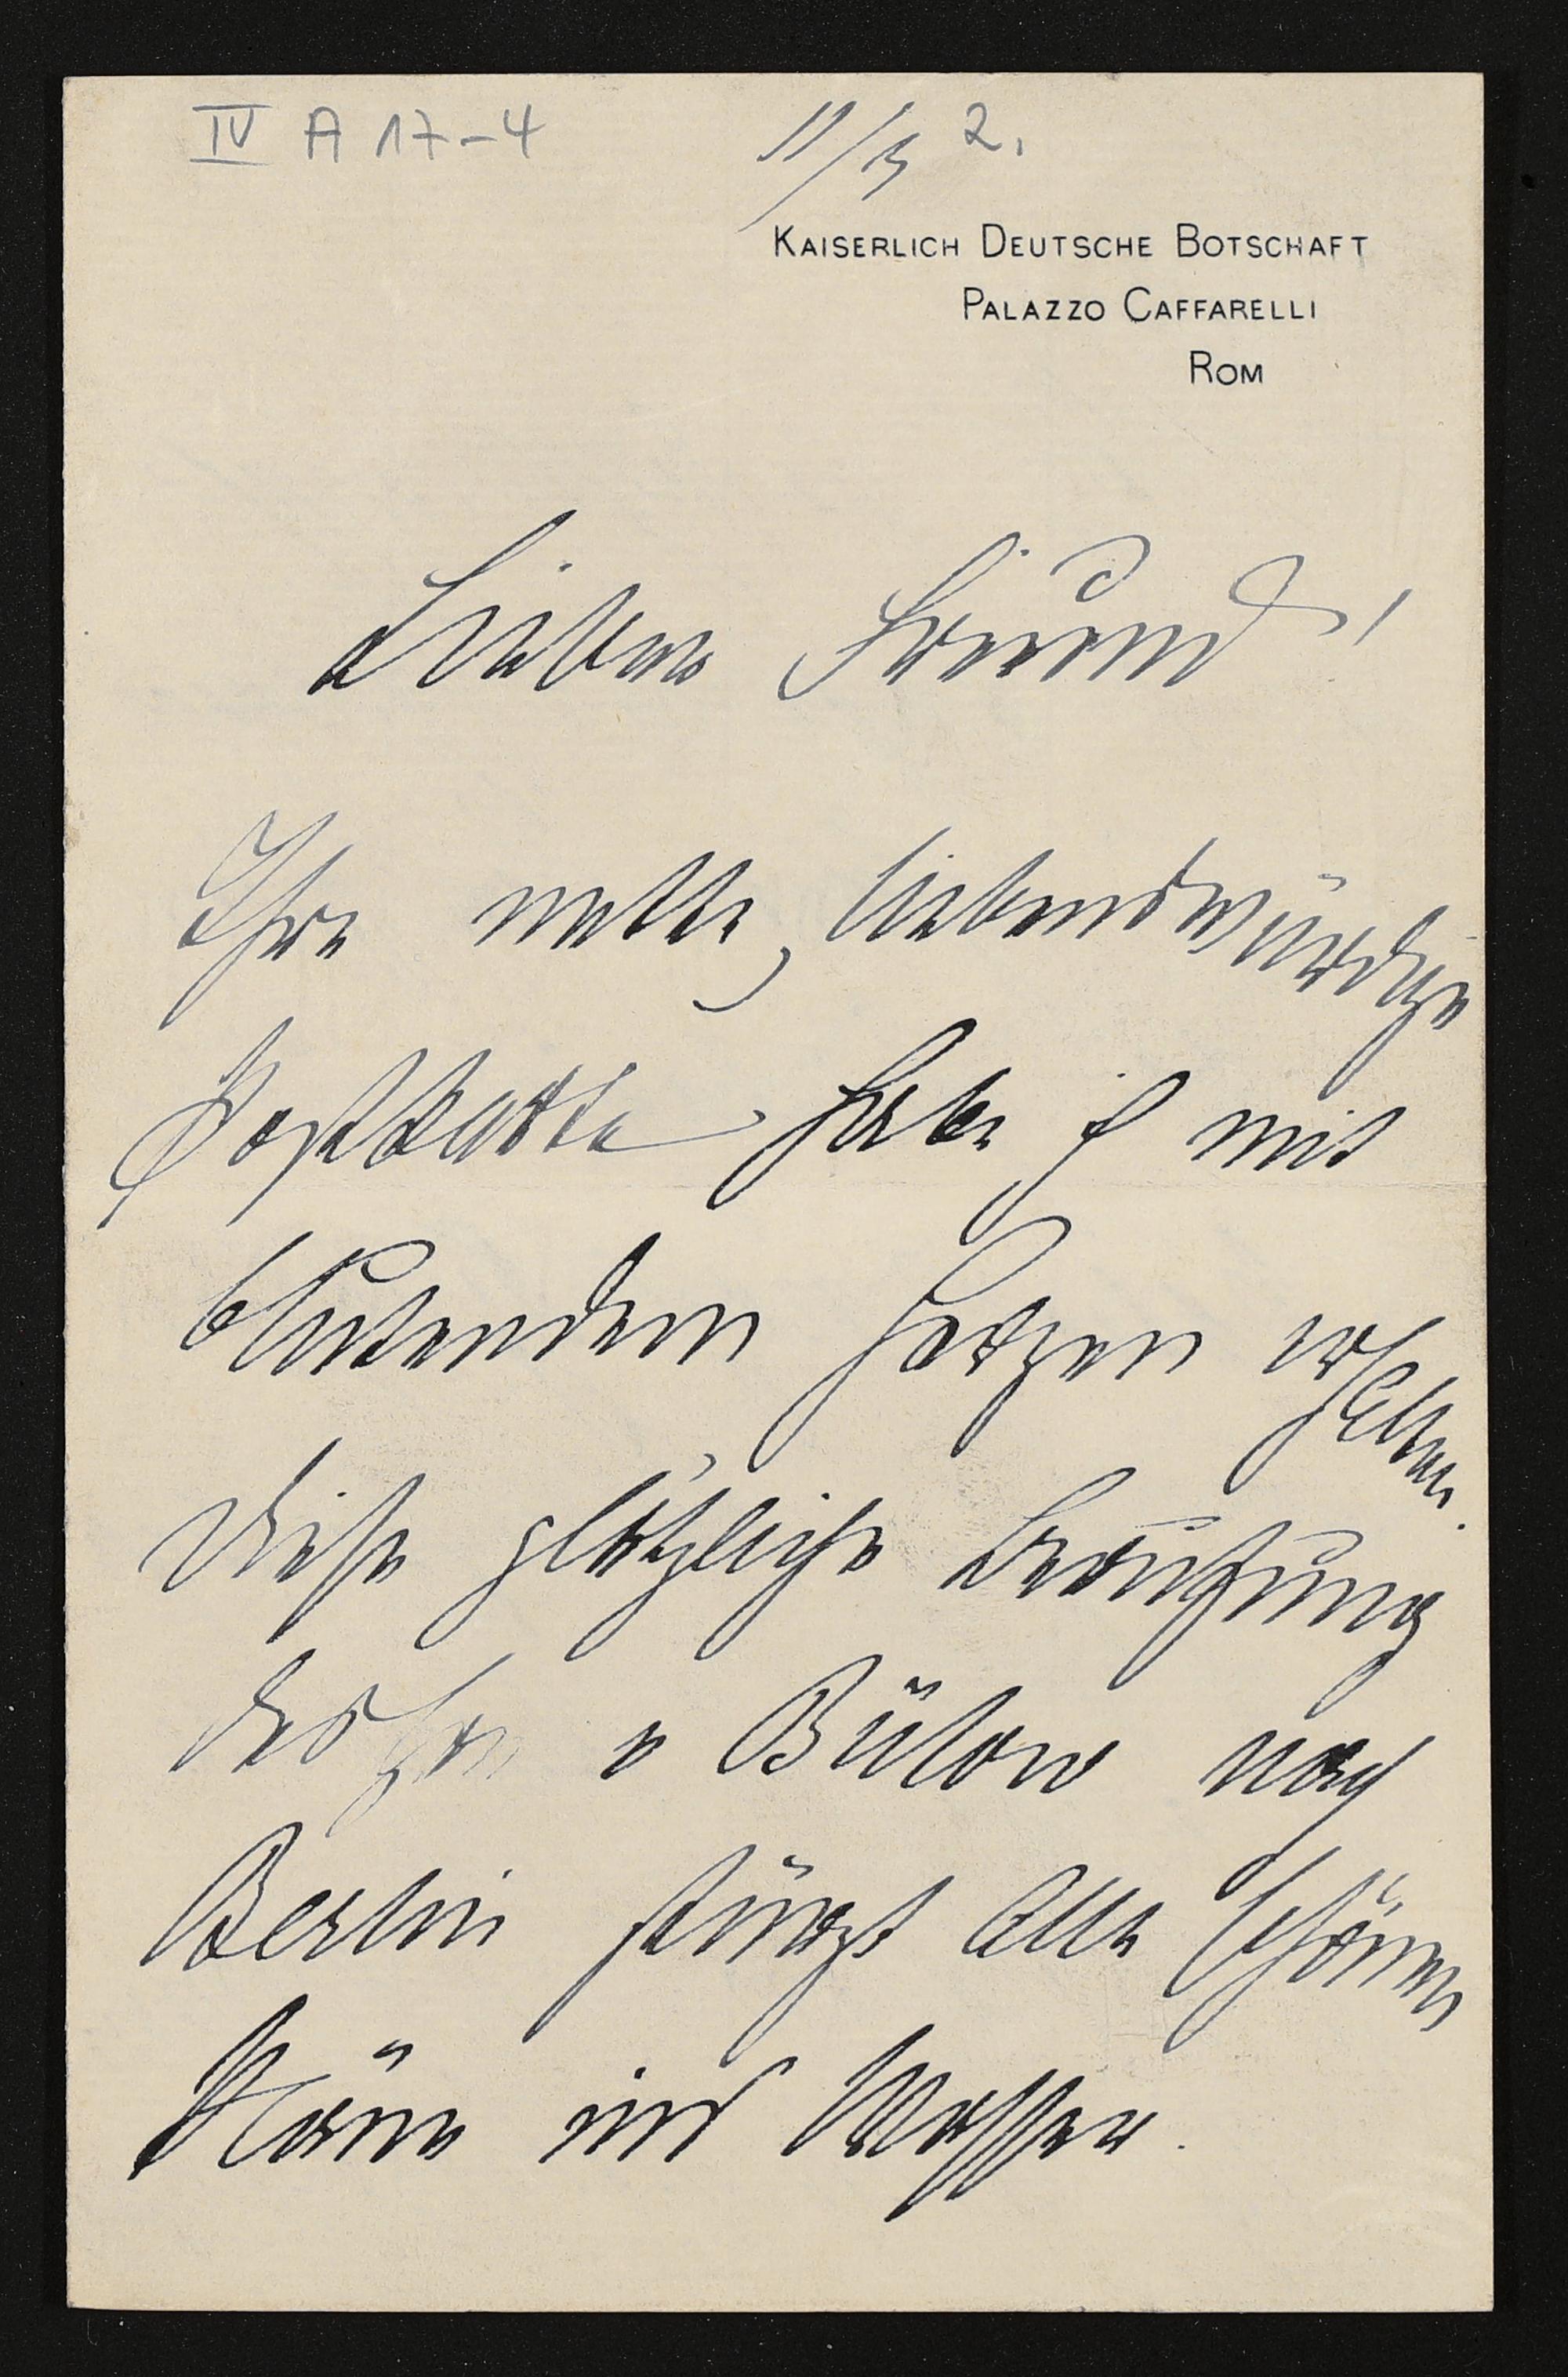 IV A 17-4
11/3 2.
KAISERLICH DEUTSCHE BOTSCHAFT
PALAZZO CAFFARELLI
ROM
Lieber Freund!
Ihre nette, liebenswürdige
Postkarte habe ich mit
blutendem Herzen erhalten.
Diese plötzliche Berufung
des Hrn v Bülow nach
Berlin stürzt alle schönen
Pläne ins Wasser.